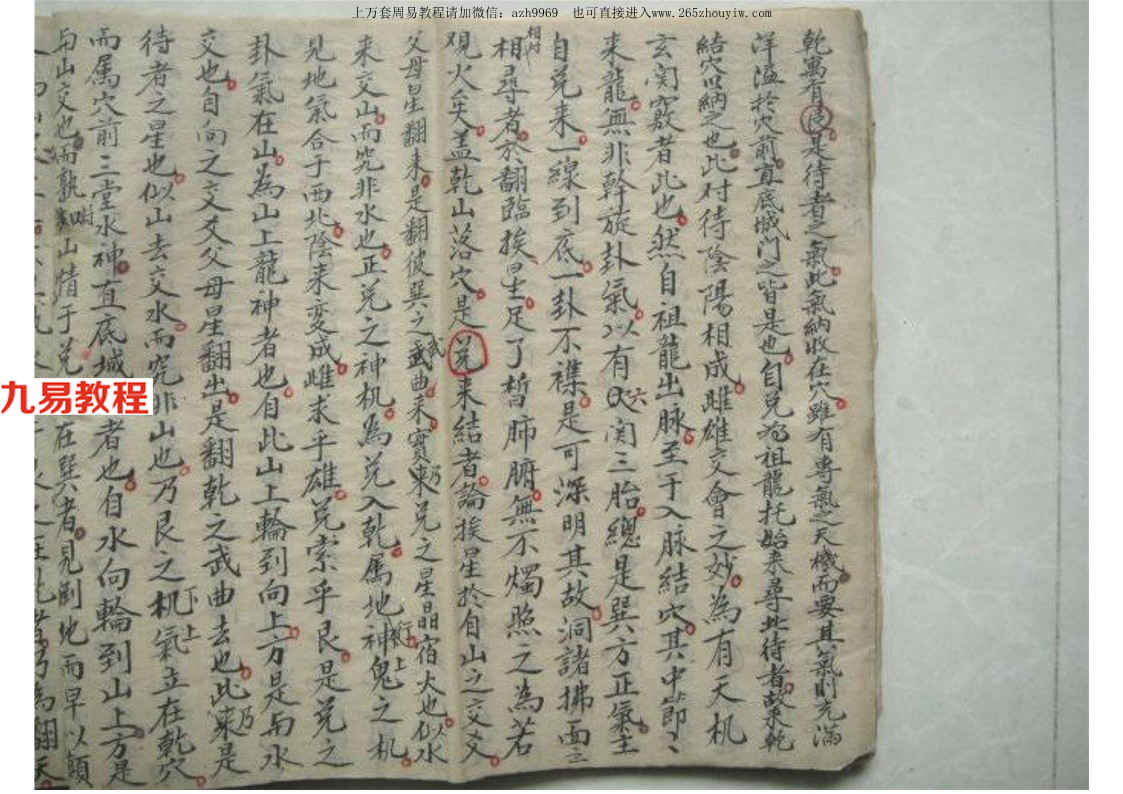 上万套周易教程请加微信：azh9969　也可直接进入www.265zhouyiw.com
乾寓有是待者之氣此氣納收在穴雖有專氣之天機而要其氣則充滿
洋溢於穴前直底城門之皆是也自兌為祖龍托始来尋此待者故東乾
結穴以納之也此对待陰陽相成雌雄交會之妙為有天机
玄関竅者此也然自祖龍出脉至于入脉結穴其中節〻
来龍無非幹旋卦氣以有六関三胎總是巽方正氣至
自兌来一線到底一卦不襍是可深明其故洞諸拂面
相尋者於翻臨挨星足了晳肺腑無不燭照之為若
相对
观火矣盖乾山落穴是兌来結者論挨星於自山之交爻
父母星翻来是翻彼巽之武曲来實乃兌之星晶宿大也以水
来交山而究非水也正兌之神机為兌入乾属地神鬼之机
行上
見地氣合于西北陰来变成雌求乎雄兌索乎艮是兌之
卦氣在山為山上龍神者也自此山上輪到向上方是与水
交也自向之交爻父母星翻出是翻乾之武曲去也此乃是
待者之星也似山去交水而究非山也乃艮之机氣立在乾穴
下上
而属穴前三堂水神直底城者也自水向輪到山上方是
与山交也而孰山情于兌在巽者見削地而早以顧
九易教程